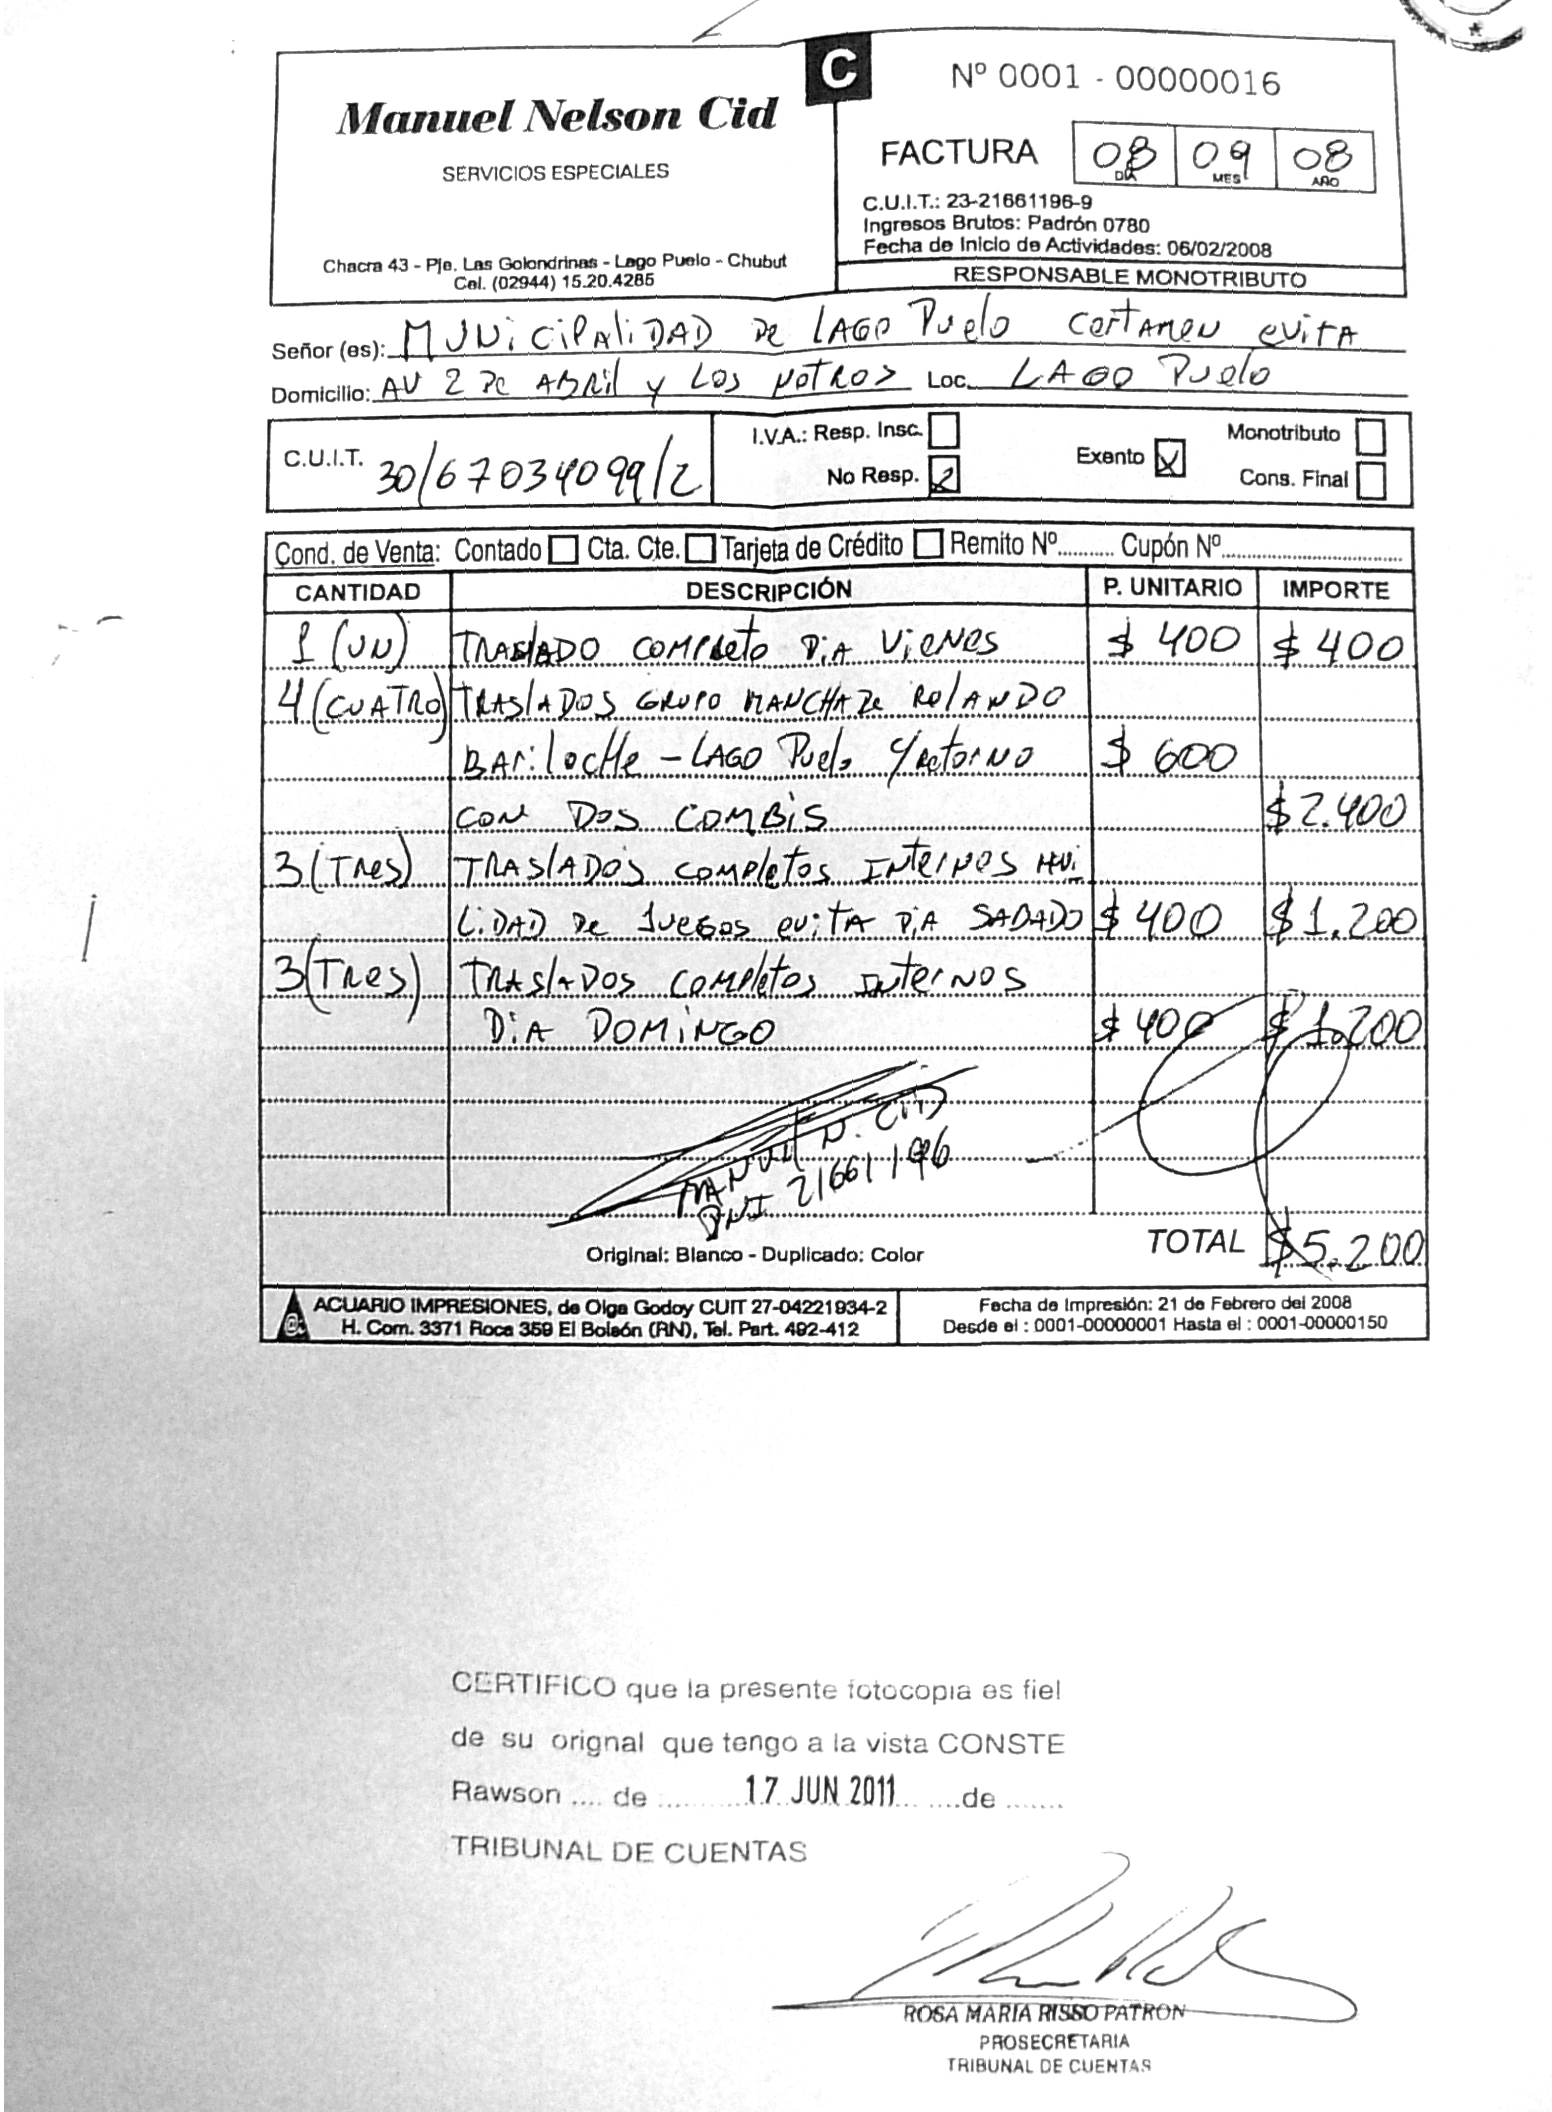 C
Nº 0001 - 00000016
Manuel Nelson Cid
SERVICIOS ESPECIALES
Chacra 43 - Pje. Las Golondrinas - Lago Puelo - Chubut
Cel. (02944) 15.20.4285
FACTURA 08 09 08
DIA MES AÑO
C.U.I.T.: 23-21661196-9
Ingresos Brutos: Padrón 0780
Fecha de Inicio de Actividades: 06/02/2008
RESPONSABLE MONOTRIBUTO
Señor (es): MUNiCiPAliDAD De LAGO Puelo CertAmen evitA
Domicilio: AV 2 De ABRil y Los NotRos Loc. LAGO Puelo
C.U.I.T. 30/67034099/2
I.V.A.: Resp. Insc. Monotributo
No Resp. Exento X Cons. Final
Cond. de Venta: Contado Cta. Cte. Tarjeta de Crédito Remito Nº.......... Cupón Nº
CANTIDAD DESCRIPCIÓN P. UNITARIO IMPORTE
1 (UN) TRASlADO COMPleto DiA VieNes $ 400 $ 400
4 (CUATRO) TRASlADOS GRUPO MANCHA De ROlANDO
BARilocHe - LAGO Puelo c/RetorNO $ 600
CON DOS COMBiS $ 2.400
3 (TRes) TRASlADOS COMPletos INterNos
LiDAD De Juegos evitA DiA SABADO $ 400 $ 1.200
3 (TRes) TRASlADOS COMPletos INterNOS
DiA DOMiNGO $ 400 $ 1.200
MANUEL N. CID
DNI 21661196
TOTAL $ 5.200
Original: Blanco - Duplicado: Color
ACUARIO IMPRESIONES, de Olga Godoy CUIT 27-04221934-2
H. Com. 3371 Roca 359 El Bolsón (RN), Tel. Part. 492-412
Fecha de Impresión: 21 de Febrero del 2008
Desde el : 0001-00000001 Hasta el : 0001-00000150
CERTIFICO que la presente fotocopia es fiel
de su orignal que tengo a la vista CONSTE
Rawson .... de .......... 17 JUN 2011 ........de .......
TRIBUNAL DE CUENTAS
ROSA MARIA RISSO PATRON
PROSECRETARIA
TRIBUNAL DE CUENTAS